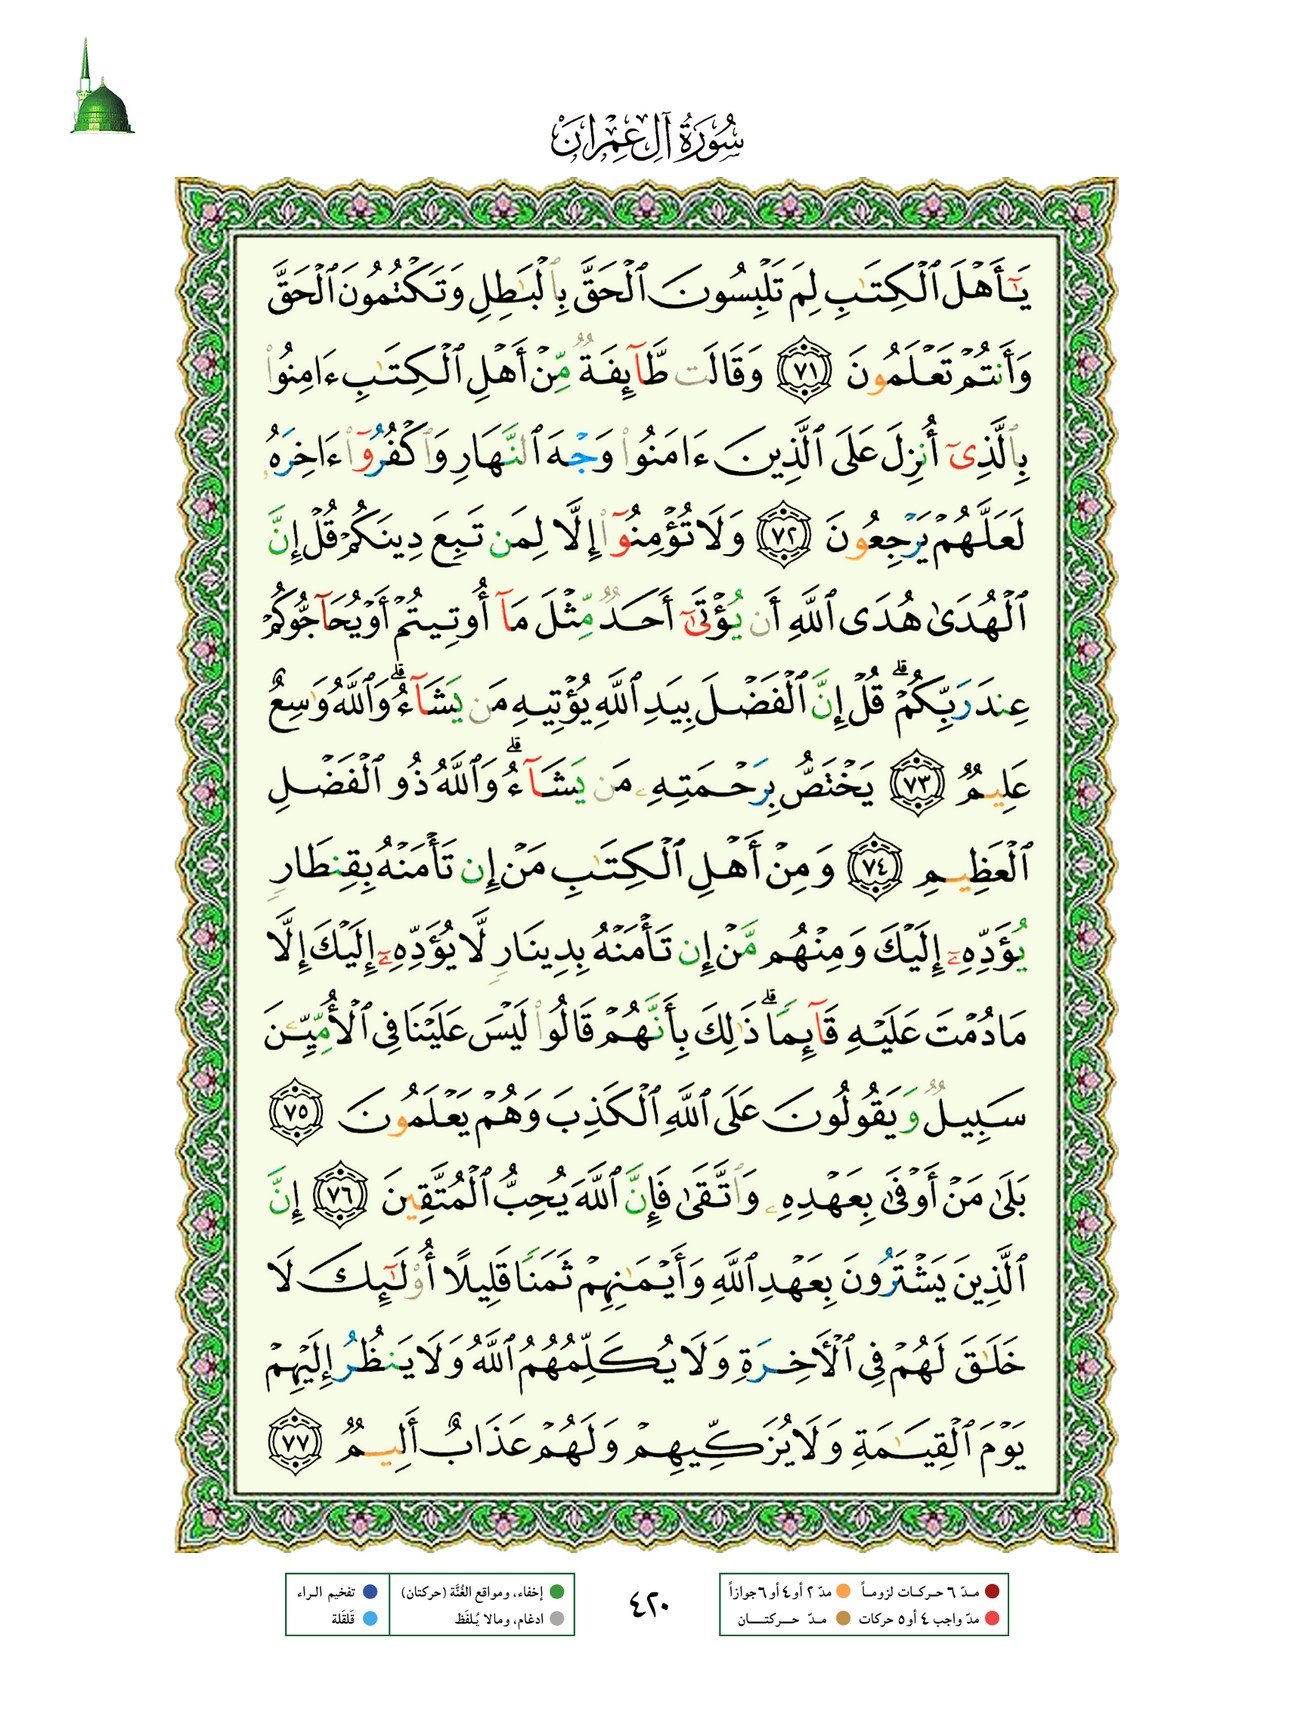 سُورَةُ آلِ عِمْرَانَ
يَـٰٓأَهْلَ ٱلْكِتَـٰبِ لِمَ تَلْبِسُونَ ٱلْحَقَّ بِٱلْبَـٰطِلِ وَتَكْتُمُونَ ٱلْحَقَّ
وَأَنتُمْ تَعْلَمُونَ ٧١ وَقَالَت طَّآئِفَةٌ مِّنْ أَهْلِ ٱلْكِتَـٰبِ ءَامِنُوا۟
بِٱلَّذِىٓ أُنزِلَ عَلَى ٱلَّذِينَ ءَامَنُوا۟ وَجْهَ ٱلنَّهَارِ وَٱكْفُرُوٓا۟ ءَاخِرَهُۥ
لَعَلَّهُمْ يَرْجِعُونَ ٧٢ وَلَا تُؤْمِنُوٓا۟ إِلَّا لِمَن تَبِعَ دِينَكُمْ قُلْ إِنَّ
ٱلْهُدَىٰ هُدَى ٱللَّهِ أَن يُؤْتَىٰٓ أَحَدٌ مِّثْلَ مَآ أُوتِيتُمْ أَوْ يُحَآجُّوكُمْ
عِندَ رَبِّكُمْ ۗ قُلْ إِنَّ ٱلْفَضْلَ بِيَدِ ٱللَّهِ يُؤْتِيهِ مَن يَشَآءُ ۗ وَٱللَّهُ وَٰسِعٌ
عَلِيمٌ ٧٣ يَخْتَصُّ بِرَحْمَتِهِۦ مَن يَشَآءُ ۗ وَٱللَّهُ ذُو ٱلْفَضْلِ
ٱلْعَظِيمِ ٧٤ وَمِنْ أَهْلِ ٱلْكِتَـٰبِ مَنْ إِن تَأْمَنْهُ بِقِنطَارٍ
يُؤَدِّهِۦٓ إِلَيْكَ وَمِنْهُم مَّنْ إِن تَأْمَنْهُ بِدِينَارٍ لَّا يُؤَدِّهِۦٓ إِلَيْكَ إِلَّا
مَا دُمْتَ عَلَيْهِ قَآئِمًا ۗ ذَٰلِكَ بِأَنَّهُمْ قَالُوا۟ لَيْسَ عَلَيْنَا فِى ٱلْأُمِّيِّـۧنَ
سَبِيلٌ وَيَقُولُونَ عَلَى ٱللَّهِ ٱلْكَذِبَ وَهُمْ يَعْلَمُونَ ٧٥
بَلَىٰ مَنْ أَوْفَىٰ بِعَهْدِهِۦ وَٱتَّقَىٰ فَإِنَّ ٱللَّهَ يُحِبُّ ٱلْمُتَّقِينَ ٧٦ إِنَّ
ٱلَّذِينَ يَشْتَرُونَ بِعَهْدِ ٱللَّهِ وَأَيْمَـٰنِهِمْ ثَمَنًا قَلِيلًا أُو۟لَـٰٓئِكَ لَا
خَلَـٰقَ لَهُمْ فِى ٱلْـَٔاخِرَةِ وَلَا يُكَلِّمُهُمُ ٱللَّهُ وَلَا يَنظُرُ إِلَيْهِمْ
يَوْمَ ٱلْقِيَـٰمَةِ وَلَا يُزَكِّيهِمْ وَلَهُمْ عَذَابٌ أَلِيمٌ ٧٧
مدّ ٦ حركات لزوماً مدّ ٢ أو ٤ أو ٦ جوازاً
مدّ واجب ٤ أو ٥ حركات مدّ حركتان
٤٢٠
إخفاء، ومواقع الغُنَّة (حركتان) تفخيم الراء
ادغام، ومالا يُلفَظ قلقلة